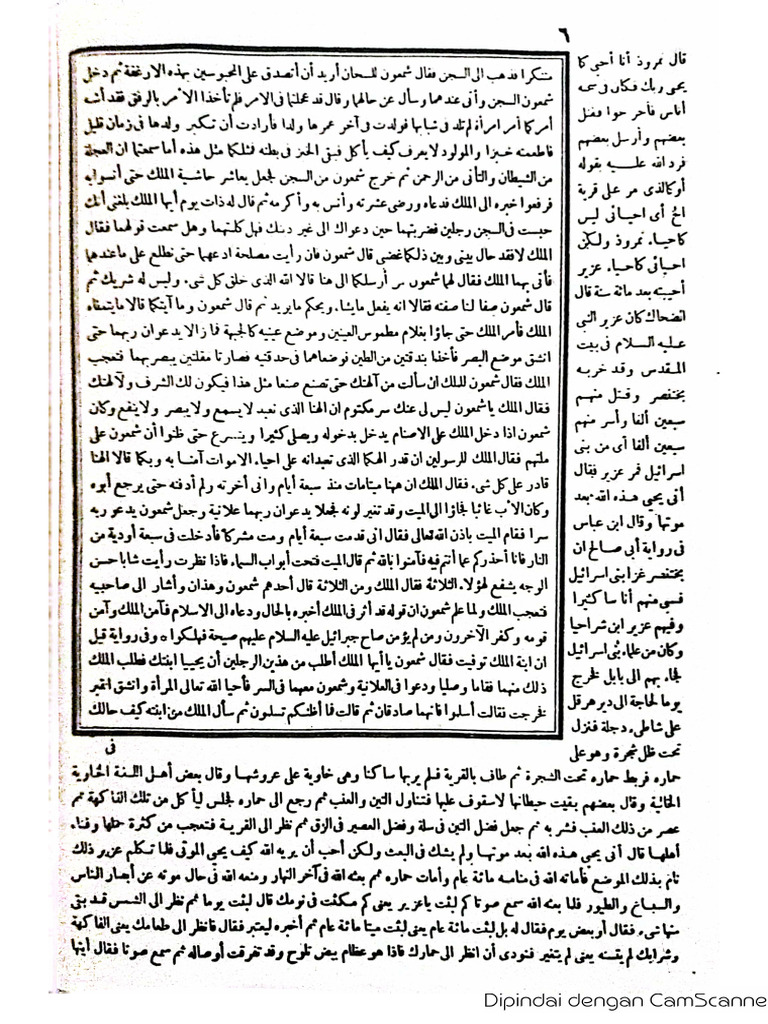 ٦
متنكرا فذهب الى السجن فقال شمعون للسجان أريد أن أتصدق على المحبوسين بهذه الارغفة ثم دخل
شمعون السجن وأتى عندهما وسأل عن حالهما وقال قد عجلتما فى الامر فلم تأخذا الأمر بالرفق فقد أشبه
أمركما أمر امرأة لم تلد فى شبابها فولدت فى آخر عمرها ولدا فأرادت أن تكبر ولدها فى زمان قليل
فاطعمته خبزا والمولود لا يعرف كيف يأكل فبقى الخبز فى بطنه فثلكما مثل هذه أما سمعتما ان العجلة
من الشيطان والتأنى من الرحمن ثم خرج شمعون من السجن فجعل يعاشر حاشية الملك حتى أنسوا به
فرفعوا خبره الى الملك فدعاه ورضى عشرته وأنس به وأكرمه ثم قال له ذات يوم أيها الملك بلغنى أنك
حبست فى السجن رجلين فضربتهما حين دعواك الى غير دينك فهل كلمتهما وهل سمعت قولهما فقال
الملك لا فقد حال بينى وبين ذلك غضبى قال شمعون فان رأيت مصلحة ادعهما حتى نطلع على ما عندهما
فأتى بهما الملك فقال لهما شمعون من أرسلكما الى هنا قالا الله الذى خلق كل شىء وليس له شريك ثم
قال شمعون صفا لنا صفته فقالا انه يفعل ما يشاء ويحكم ما يريد ثم قال شمعون وما آيتكما قالا ما يتمناه
الملك فأمر الملك حتى جاؤا بغلام مطموس العينين وموضع عينيه كالجبهة فما زالا يدعوان ربهما حتى
انشق موضع البصر فأخذا بندقتين من الطين فوضعاهما فى حدقتيه فصارتا مقلتين يبصر بهما فتعجب
الملك فقال شمعون للملك ان سألت من آلهتك حتى تصنع صنعا مثل هذا فيكون لك الشرف ولآلهتك
فقال الملك يا شمعون ليس لى عنك سر مكتوم ان الهنا الذى نعبد لا يسمع ولا يبصر ولا ينفع وكان
شمعون اذا دخل الملك على الاصنام يدخل بدخوله ويصلى كثيرا ويتضرع حتى ظنوا أن شمعون على
ملتهم فقال الملك للرسولين ان قدر الهكما الذى تعبدانه على احياء الاموات آمنا به وبكما قالا الهنا
قادر على كل شىء فقال الملك ان ههنا ميتا مات منذ سبعة أيام وانى أخرته ولم أدفنه حتى يرجع أبوه
وكان الأب غائبا فجاؤا الى الميت وقد تغير لونه فجعلا يدعوان ربهما علانية وجعل شمعون يدعو ربه
سرا فقام الميت باذن الله تعالى فقال انى قدمت سبعة أيام ومت مشركا فأدخلت فى سبعة أودية من
النار فانا أحذركم عما أنتم فيه فآمنوا بالله ثم قال الميت فتحت أبواب السماء فاذا نظرت رأيت شابا حسن
الوجه يشفع لهؤلاء الثلاثة فقال الملك ومن الثلاثة قال أحدهم شمعون وهذان وأشار الى صاحبيه
فتعجب الملك ولما علم شمعون ان قوله قد أثر فى الملك أخبره بالحال ودعاه الى الاسلام فآمن الملك وآمن
قومه وكفر الآخرون ومن لم يؤمن صاح جبرائيل عليه السلام عليهم صيحة فهلكوا ه وفى رواية قيل
ان ابنة الملك توفيت فقال شمعون يا أيها الملك أطلب من هذين الرجلين أن يحييا ابنتك فطلب الملك
ذلك منهما فقاما وصليا ودعوا فى العلانية وشمعون معهما فى السر فأحيا الله تعالى المرأة وانشق القبر
فخرجت فقالت أسلوا فانهما صادقان ثم قالت فما أظنكم تسلمون ثم سأل الملك من ابنته كيف حالك
فى
قال نمروذ أنا أحيى كما
يحيى ربك فكان فى سجنه
أناس فأخرجوا فقتل
بعضهم وأرسل بعضهم
فرد الله عليه بقوله
أو كالذى مر على قرية
الخ أى احيائى ليس
كاحياء نمروذ ولكن
احيائى كاحياء عزير
أحييته بعد مائة سنة قال
الضحاك كان عزير النبى
عليه السلام فى بيت
المقدس وقد خربه
بختنصر وقتل منهم
سبعين ألفا وأسر منهم
سبعين ألفا أى من بنى
اسرائيل فمر عزير فقال
أنى يحيى هذه الله بعد
موتها وقال ابن عباس
فى رواية أبى صالح ان
بختنصر غزا بنى اسرائيل
فسبى منهم أناسا كثيرا
وفيهم عزير ابن شراحيا
وكان من علماء بنى اسرائيل
فجاء بهم الى بابل فخرج
يوما لحاجة الى دير هرقل
على شاطىء دجلة فنزل
تحت ظل شجرة وهو على
حماره فربط حماره تحت الشجرة ثم طاف بالقرية فلم ير بها ساكنا وهى خاوية على عروشها وقال بعض أهل اللغة الخاوية
الخالية وقال بعضهم بقيت حيطانها لا سقوف عليها فتناول التين والعنب ثم رجع الى حماره فجلس ليأكل من تلك الفاكهة ثم
عصر من ذلك العنب فشر به ثم جعل فضل التين فى سلة وفضل العصير فى الزق ثم نظر الى القرية فتعجب من كثرة حملها وفناء
أهلها قال أنى يحيى هذه الله بعد موتها ولم يشك فى البعث ولكن أحب أن يريه الله كيف يحيى الموتى فلما تكلم عزير ذلك
نام بذلك الموضع فأماته الله فى منامه مائة عام وأمات حماره ثم بعثه الله فى آخر النهار ومنعه الله فى حال موته عن أبصار الناس
والسباع والطيور فلما بعثه الله سمع صوتا كم لبثت يا عزير يعنى كم مكثت فى نومك قال لبثت يوما ثم نظر الى الشمس قد بقى
منها شىء فقال أو بعض يوم فقال له بل لبثت مائة عام يعنى لبثت ميتا مائة عام ثم أخبره ليعتبر فقال فانظر الى طعامك يعنى الفاكهة
وشرابك لم يتسنه يعنى لم يتغير فنودى أن انظر الى حمارك فاذا هو عظام بيض تلوح وقد تفرقت أوصاله ثم سمع صوتا فقال أيتها
Dipindai dengan CamScanne